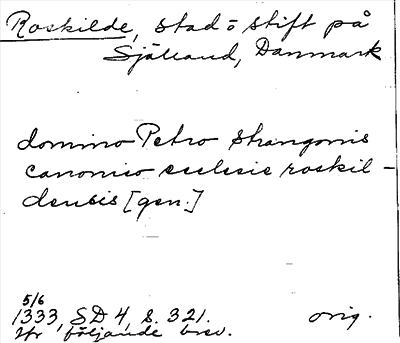 Roskilde, stad o stift på
Själland, Danmark
domino Petro Strangonis
canonico ecclesie roskil-
densis [gen.]
5/6
1333, SD 4, s. 321. orig.
följande brev.